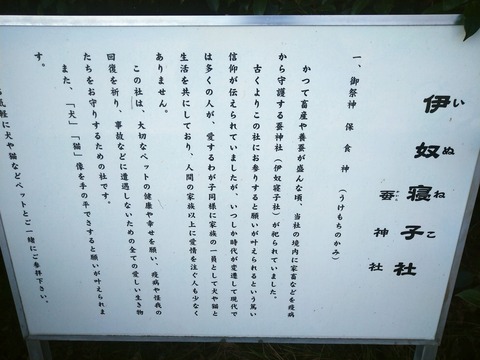 伊奴寝子社
いぬねこ
蚕神社
一、御祭神 保食神 (うけもちのかみ)
かつて畜産や養蚕が盛んな頃、当社の境内に家畜などを疫病
から守護する蚕神社(伊奴寝子社)が祀られていました。
古くよりこの社にお参りすると願いが叶えられるという篤い
信仰が伝えられていましたが、いつしか時代が変遷して現代で
は多くの人が、愛するわが子同様に家族の一員として犬や猫と
生活を共にしており、人間の家族以上に愛情を注ぐ人も少なく
ありません。
この社は、大切なペットの健康や幸せを願い、疫病や怪我の
回復を祈り、事故などに遭遇しないための全ての愛しい生き物
たちをお守りするための社です。
また、「犬」「猫」像を手の平でさすると願いが叶えられま
す。
気軽に犬や猫などペットとご一緒にご参拝下さい。